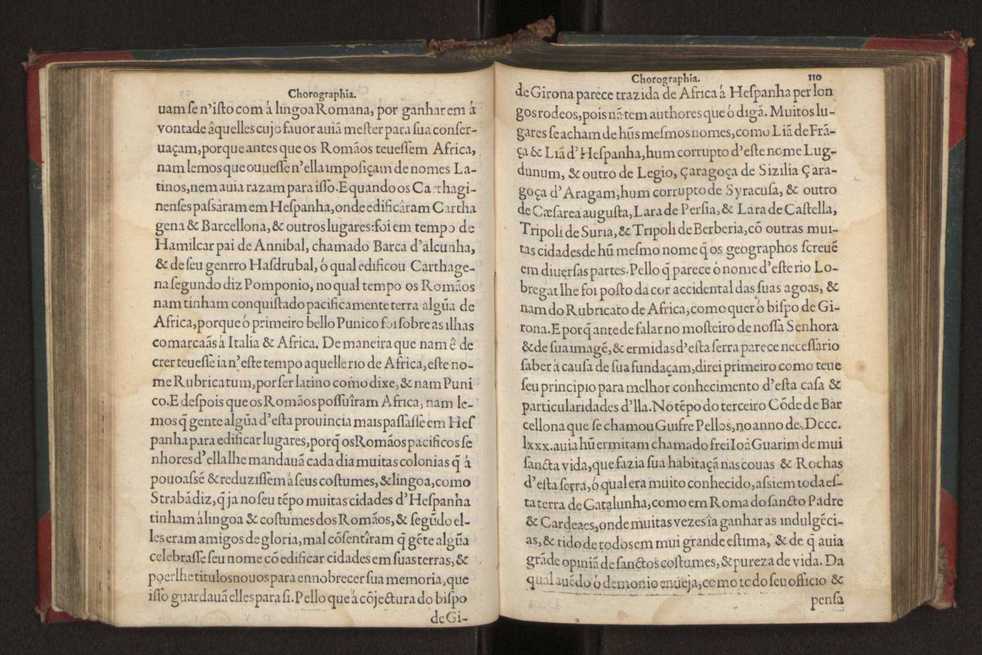 Chorographia.
uam se n'isto com à lingoa Romana, por ganharem á
vontade âquelles cujo fauor auiã mester para sua conser-
uaçam, porque antes que os Romãos teuessem Africa,
nam lemos que ouuesse n'ella imposiçam de nomes La-
tinos, nem auia razam para isso. E quando os Carthagi-
nenses passàram em Hespanha, onde edificàram Cartha
gena & Barcellona, & outros lugares: foi em tempo de
Hamilcar pai de Annibal, chamado Barca d'alcunha,
& de seu genrro Hasdrubal, ó qual edificou Carthage-
na segundo diz Pomponio, no qual tempo os Romãos
nam tinham conquistado pacificamente terra algũa de
Africa, porque ó primeiro bello Punico foi sobre as ilhas
comarcaãs à Italia & Africa. De maneira que nam ê de
crer teuesse ia n'este tempo aquelle rio de Africa, este no-
me Rubricatum, por ser latino como dixe, & nam Puni
co. E despois que os Romãos possuiram Africa, nam le-
mos q̃ gente algũa d'esta prouincia mais passasse em Hes
panha para edificar lugares, porq̃ os Romãos pacificos se
nhores d'ella lhe mandauã cada dia muitas colonias q̃ à
pouoassẽ & reduzissẽm à seus costumes, & lingoa, como
Strabã diz, q̃ ja no seu tẽpo muitas cidades d'Hespanha
tinham à lingoa & costumes dos Romãos, & segũdo el-
les eram amigos de gloria, mal cõsentiram q̃ gẽte algũa
celebrasse seu nome cõ edificar cidades em suas terras, &
poer lhe titulos nouos para ennobrecer sua memoria, que
isso guardauã elles para si. Pello que à cõjectura do bispo
de Gi-
Chorographia. 110
de Girona parece trazida de Africa á Hespanha per lon
gos rodeos, pois nã tem authores que ò digã. Muitos lu-
gares se acham de hũs mesmos nomes, como Liã de Frã-
ça & Liã d'Hespanha, hum corrupto d'este nome Lug-
dunum, & outro de Legio, Çaragoça de Sizilia Çara-
goça d'Aragam, hum corrupto de Syracusa, & outro
de Cæsarea augusta, Lara de Persia, & Lara de Castella,
Tripoli de Suria, & Tripoli de Berberia, cõ outras mui-
tas cidades de hũ mesmo nome q̃ os geographos screuẽ
em diuersas partes. Pello q̃ parece ò nome d'este rio Lo-
bregat lhe foi posto da cor accidental das suas agoas, &
nam do Rubricato de Africa, como quer ò bispo de Gi-
rona. E porq̃ ante de falar no mosteiro de nossa Senhora
& de sua imagẽ, & ermidas d'esta serra parece necessario
saber à causa de sua fundaçam, direi primeiro como teue
seu principio para melhor conhecimento d'esta casa &
particularidades d'lla. No tẽpo do terceiro Cõde de Bar
cellona que se chamou Guifre Pellos, no anno de. Dccc.
lxxx. auia hũ ermitam chamado frei Ioã Guarim de mui
sancta vida, que fazia sua habitaçã nas couas & Rochas
d'esta serra, ó qual era muito conhecido, assi em toda es-
ta terra de Catalunha, como em Roma do sancto Padre
& Cardeaes, onde muitas vezes ĩa ganhar as indulgẽci-
as, & tido de todos em mui grande estima, & de q̃ auia
grãde opiniã de sanctos costumes, & pureza de vida. Da
qual auẽdo ò demonio enueja, como todo seu officio &
pensa